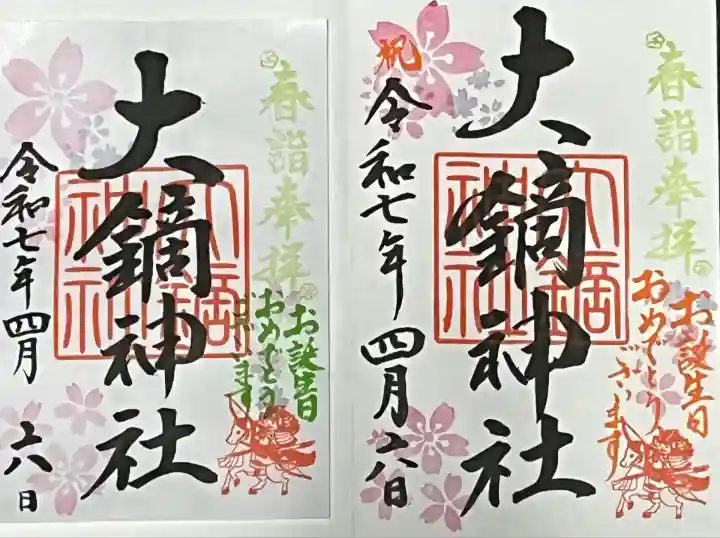 春詣奉拝
お誕生日
おめでとう
ございます
大鏑神社
大鏑
神社
令和七年四月六日
春詣奉拝
お誕生日
おめでとう
ございます
大鏑神社
大鏑
神社
祝
令和七年四月六日